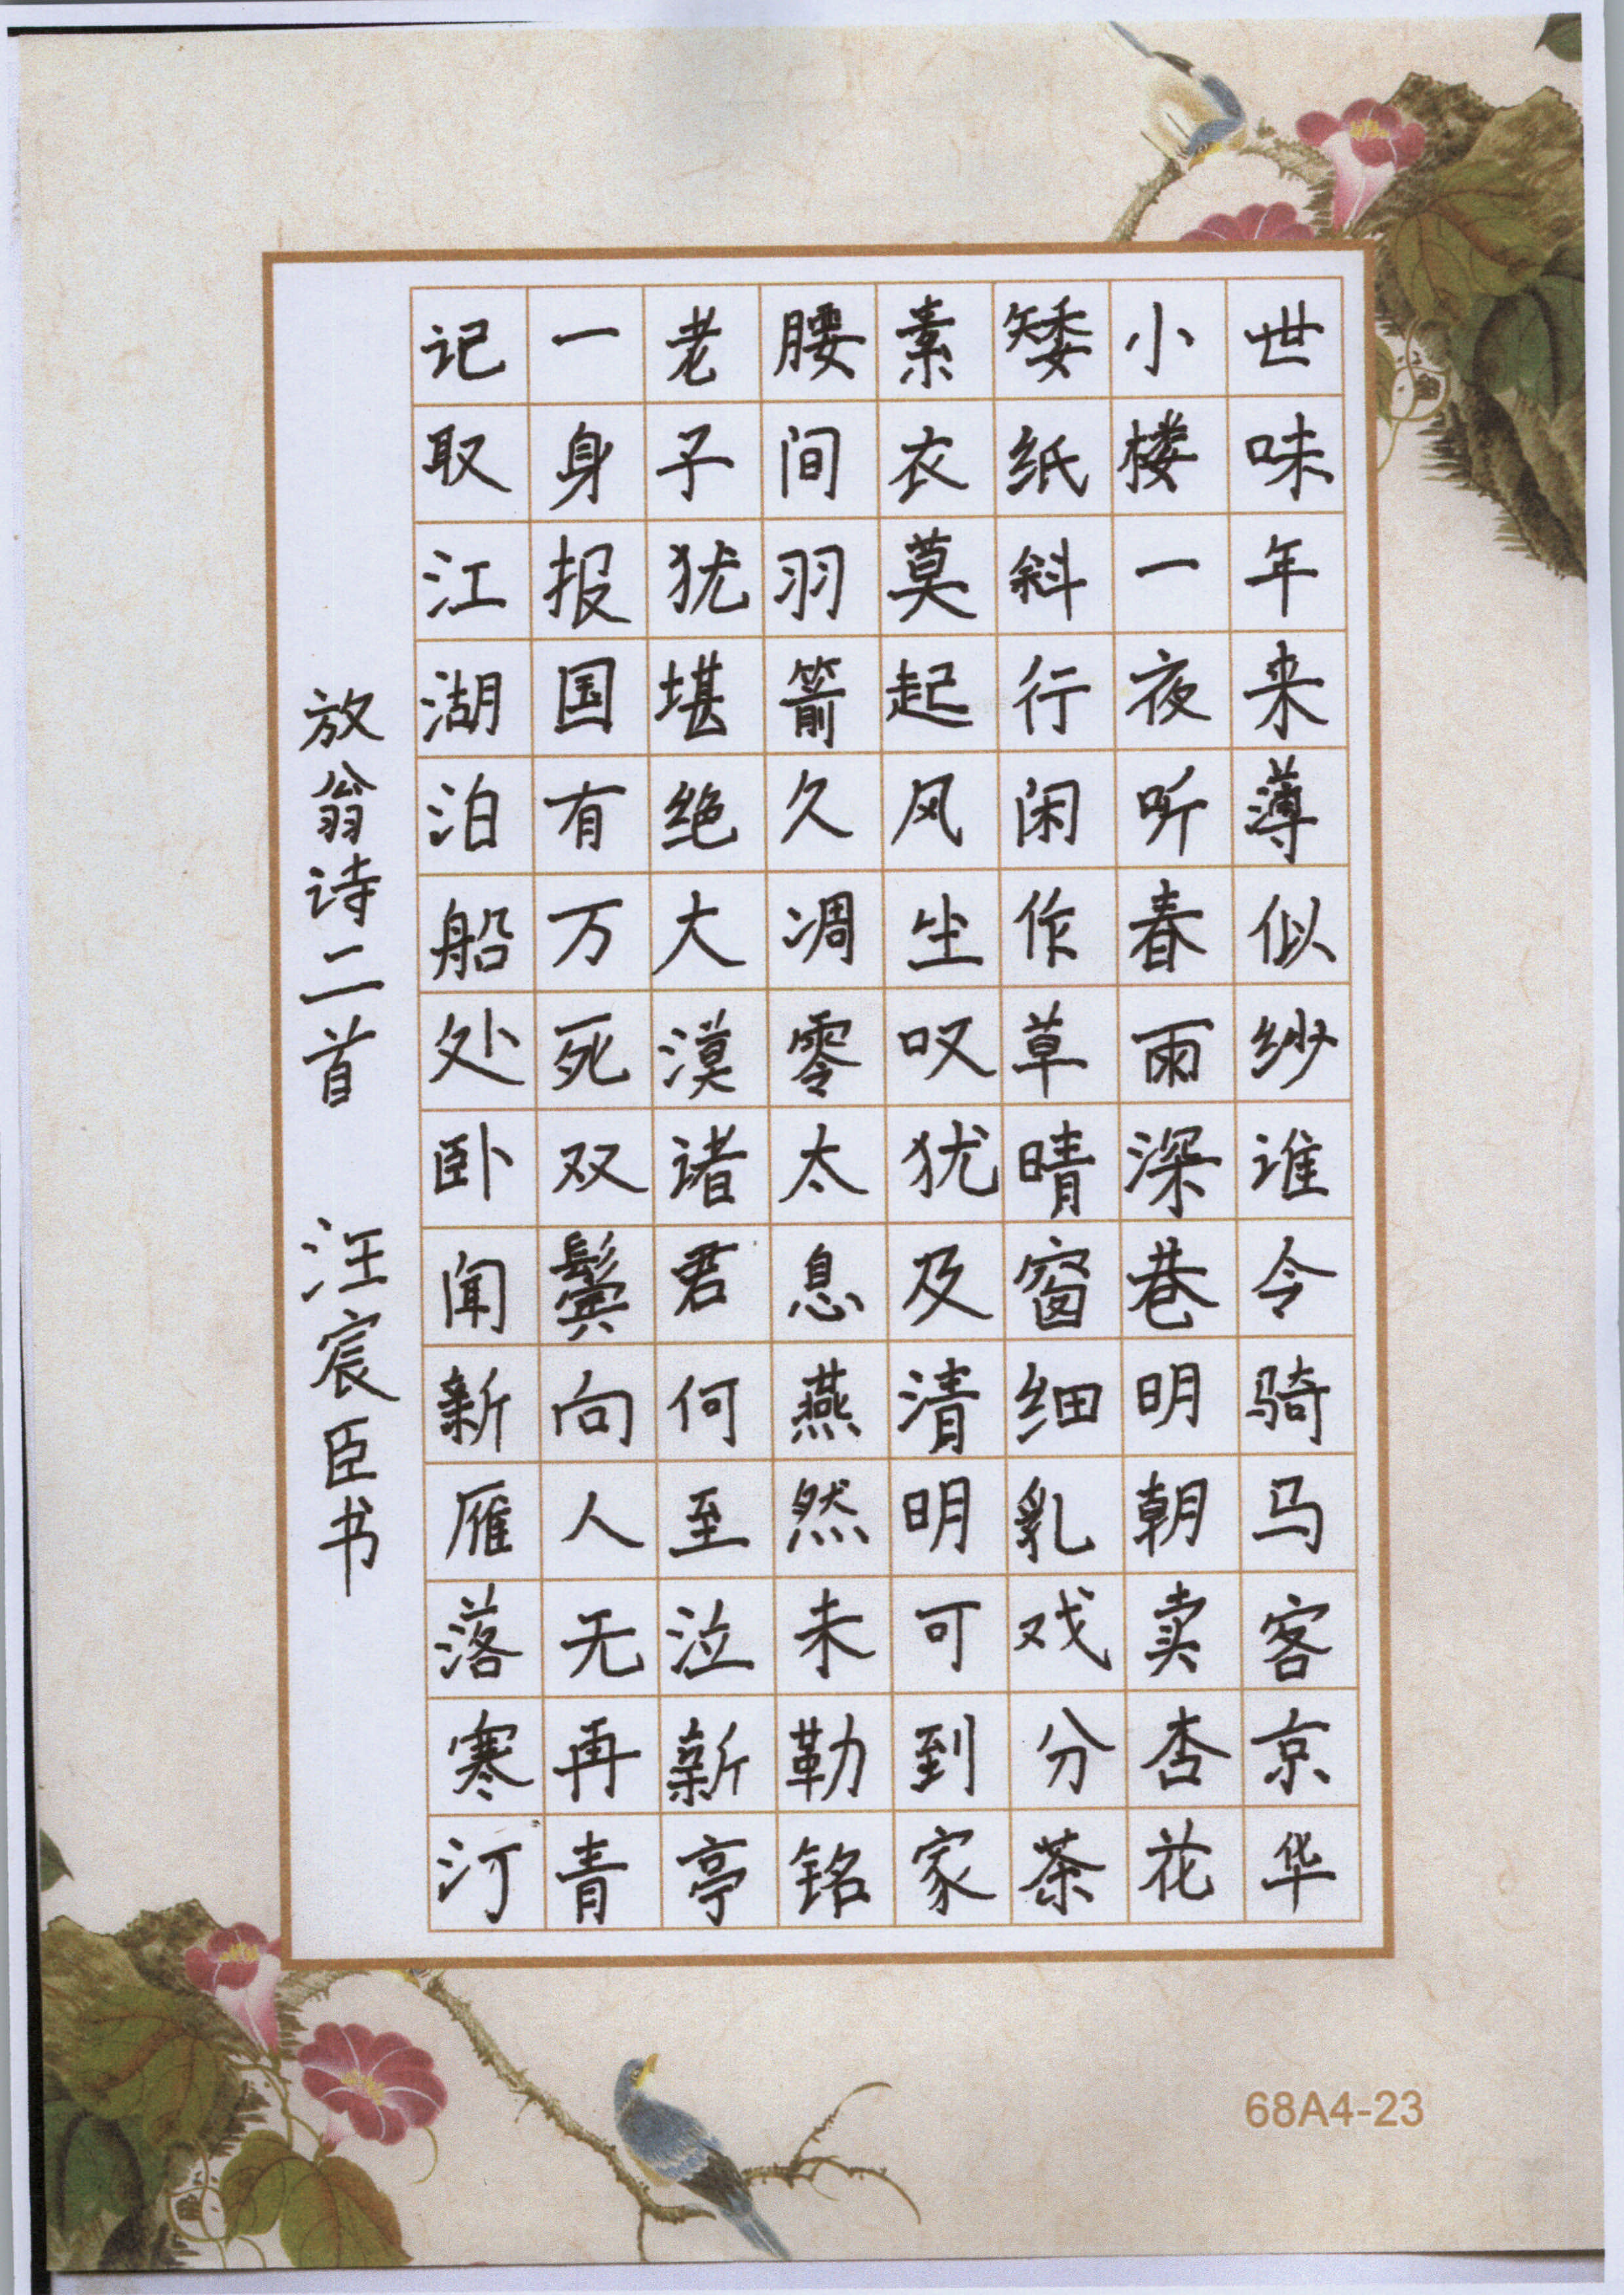 世味年来薄似纱谁令骑马客京华
小楼一夜听春雨深巷明朝卖杏花
矮纸斜行闲作草晴窗细乳戏分茶
素衣莫起风尘叹犹及清明可到家
腰间羽箭久凋零太息燕然未勒铭
老子犹堪绝大漠诸君何至泣新亭
一身报国有万死双鬓向人无再青
记取江湖泊船处卧闻新雁落寒汀
放翁诗二首 汪宸臣书
68A4-23